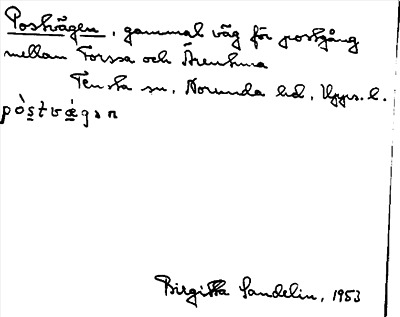 Postvägen, gammal väg för postgång
mellan Forssa och Ärentuna
Tensta sn, Norunda hd, Upps. l.
pòstvægən
Birgitta Sandelin, 1953